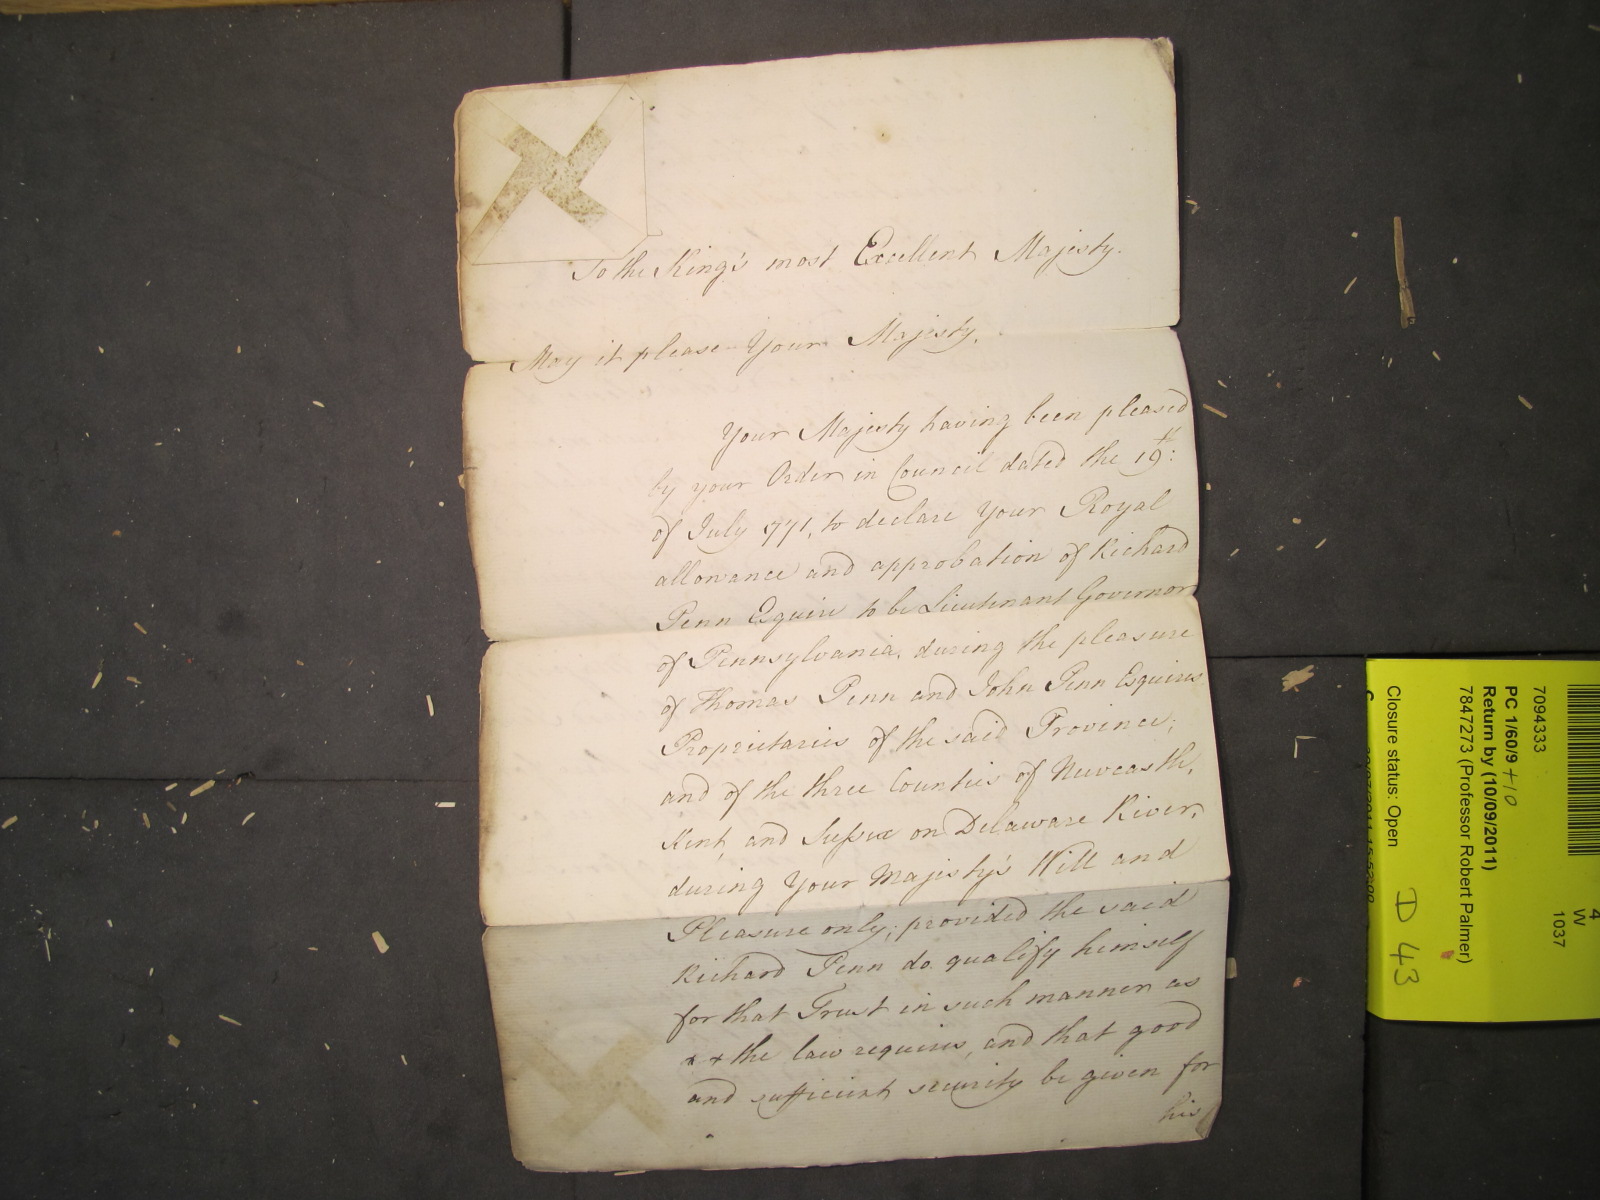 To the King's most Excellent Majesty.
May it please Your Majesty,
Your Majesty having been pleased
by your Order in Council dated the 19th:
of July 1771, to declare Your Royal
allowance and approbation of Richard
Penn Esquire to be Lieutenant Governor
of Pennsylvania, during the pleasure
of Thomas Penn and John Penn Esquires
Proprietaries of the said Province;
and of the three Counties of Newcastle,
Kent, and Sussex on Delaware River,
during Your Majesty's Will and
Pleasure only; provided the said
Richard Penn do qualify himself
for that Trust in such manner as
x x the law requires, and that good
and sufficient security be given for
his
4
W
1037
7094333
PC 1/60/9 +10
Return by (10/09/2011)
7847273 (Professor Robert Palmer)
Closure status: Open
D 43